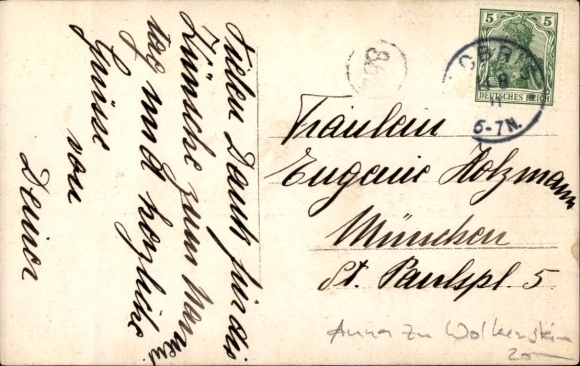 Vielen Dank für die
Wünsche zum Namens
tag und herzliche
Grüsse
von
Deiner
5 5
DEUTSCHES REICH
11
6-7N.
Fräulein
Eugenie Holzmann
München
St. Paulspl. 5
Anna zu Wolkenstein